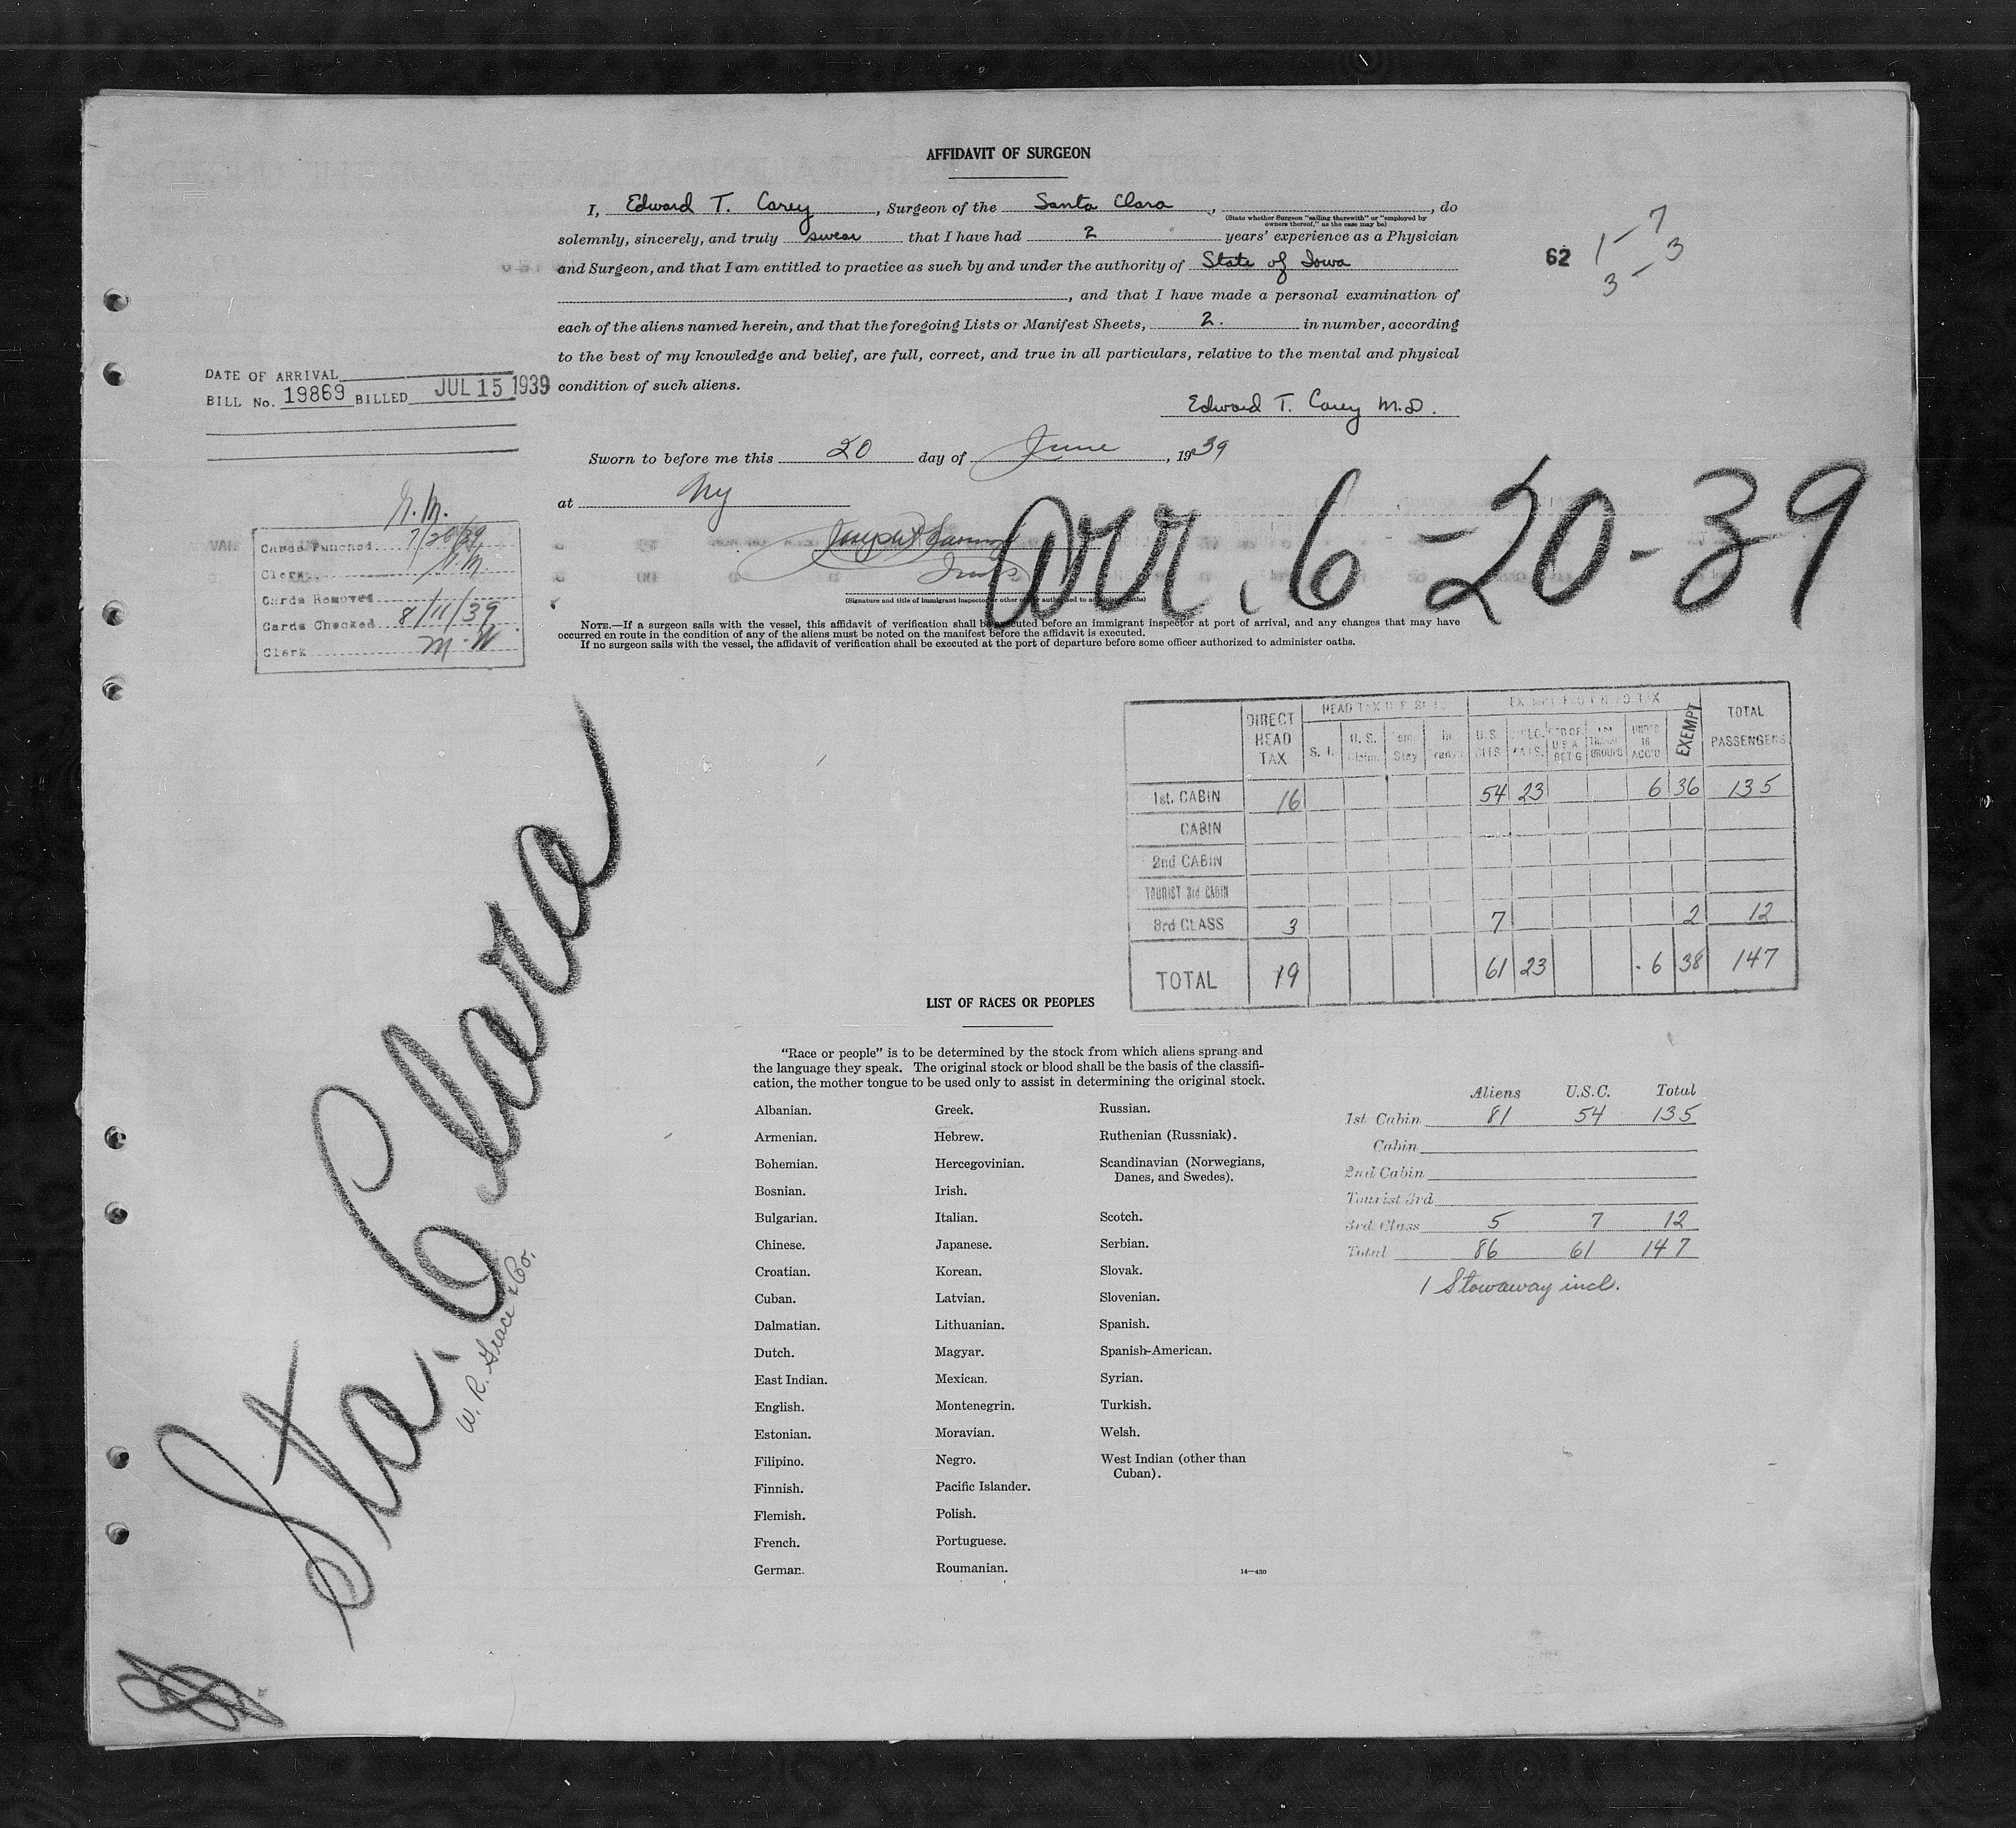 AFFIDAVIT OF SURGEON
I, Edward T. Carey, Surgeon of the Santa Clara, , do
(State whether Surgeon "sailing therewith" or "employed by
owners thereof," as the case may be)
solemnly, sincerely, and truly swear that I have had 2 years' experience as a Physician
and Surgeon, and that I am entitled to practice as such by and under the authority of State of Iowa
, and that I have made a personal examination of
each of the aliens named herein, and that the foregoing Lists or Manifest Sheets, 2. in number, according
to the best of my knowledge and belief, are full, correct, and true in all particulars, relative to the mental and physical
condition of such aliens.
Edward T. Carey M.D.
62
1 - 7
3 - 3
DATE OF ARRIVAL
BILL No. 19869 BILLED JUL 15 1939
Sworn to before me this 20 day of June, 1939
at NY
arr. 6-20-39
(Signature and title of immigrant inspector or other officer authorized to administer oaths)
Cards Punched 7/26/39
Clerk
Cards Removed
Cards Checked 8/11/39
Clerk M. W.
NOTE.—If a surgeon sails with the vessel, this affidavit of verification shall be executed before an immigrant inspector at port of arrival, and any changes that may have
occurred en route in the condition of any of the aliens must be noted on the manifest before the affidavit is executed.
If no surgeon sails with the vessel, the affidavit of verification shall be executed at the port of departure before some officer authorized to administer oaths.
DIRECT HEAD TAX S. I. U. S. Claim Stay U.S. CITS UNDER 16 ACC'D EXEMPT TOTAL PASSENGERS
1st. CABIN 16 54 23 6 36 135
CABIN
2nd CABIN
TOURIST 3rd CABIN
3rd CLASS 3 7 2 12
TOTAL 19 61 23 6 38 147
Sta. Clara
W. R. Grace & Co.
LIST OF RACES OR PEOPLES
"Race or people" is to be determined by the stock from which aliens sprang and
the language they speak. The original stock or blood shall be the basis of the classifi-
cation, the mother tongue to be used only to assist in determining the original stock.
Albanian.
Armenian.
Bohemian.
Bosnian.
Bulgarian.
Chinese.
Croatian.
Cuban.
Dalmatian.
Dutch.
East Indian.
English.
Estonian.
Filipino.
Finnish.
Flemish.
French.
German.
Greek.
Hebrew.
Hercegovinian.
Irish.
Italian.
Japanese.
Korean.
Latvian.
Lithuanian.
Magyar.
Mexican.
Montenegrin.
Moravian.
Negro.
Pacific Islander.
Polish.
Portuguese.
Roumanian.
Russian.
Ruthenian (Russniak).
Scandinavian (Norwegians,
Danes, and Swedes).
Scotch.
Serbian.
Slovak.
Slovenian.
Spanish.
Spanish-American.
Syrian.
Turkish.
Welsh.
West Indian (other than
Cuban).
14—430
Aliens U.S.C. Total
1st Cabin 81 54 135
Cabin
2nd Cabin
Tourist 3rd
3rd Class 5 7 12
Total 86 61 147
1 Stowaway incl.